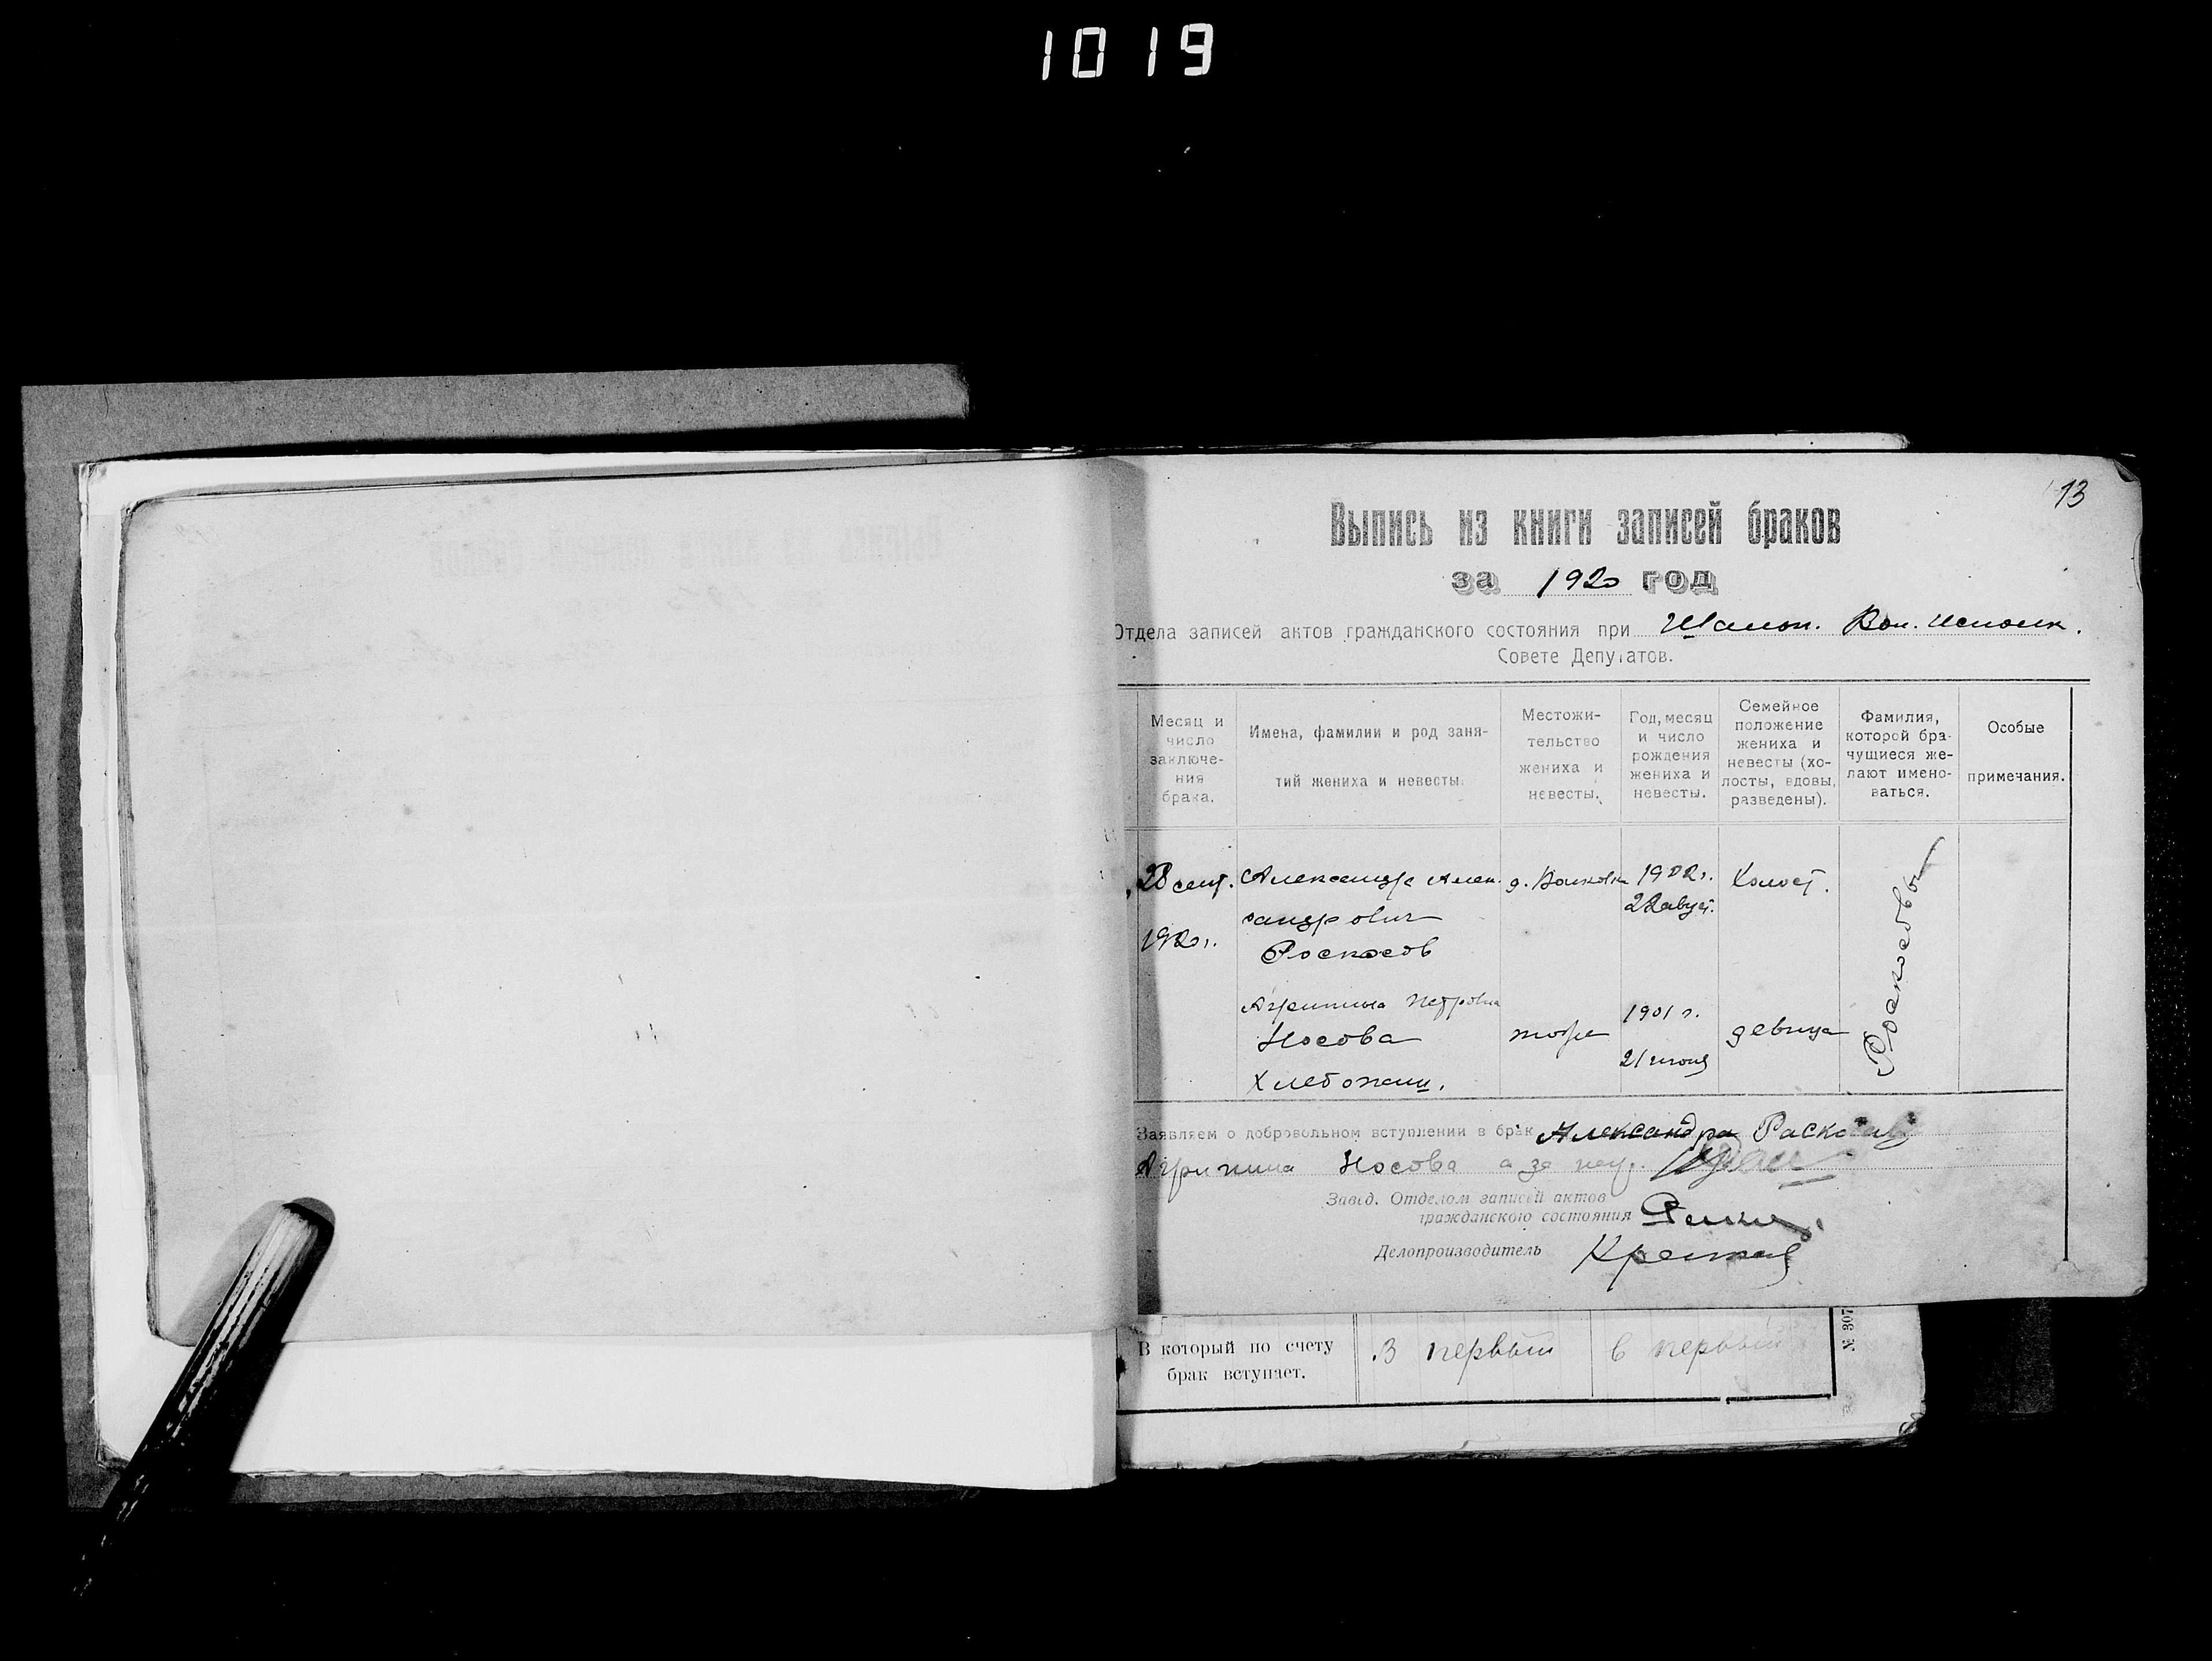 1019
13
Выпись из книги записей браков
за 1920 год
Отдела записей актов гражданского состояния при Шамон. Вол. Исполк.
Совете Депутатов.
Месяц и число заключе- ния брака.
Имена, фамилии и род заня- тий жениха и невесты.
Местожи- тельство жениха и невесты.
Год, месяц и число рождения жениха и невесты.
Семейное положение жениха и невесты (хо- лосты, вдовы, разведены).
Фамилия, которой бра- чущиеся же- лают имено- ваться.
Особые примечания.
28 сент. Александр Алек- 1902 г. Холост.
сандрович 22 август.
1920 г.
Роскосов
Агрипина Петровна 1901 г.
Носова тоже девица
21 июня
Хлебопаш.
Заявляем о добровольном вступлении в брак Александра
Агрипина Носова а за неё
Завед. Отделом записей актов
гражданского состояния
Делопроизводитель
В который по счету В первый в первый
брак вступает.
№ 307